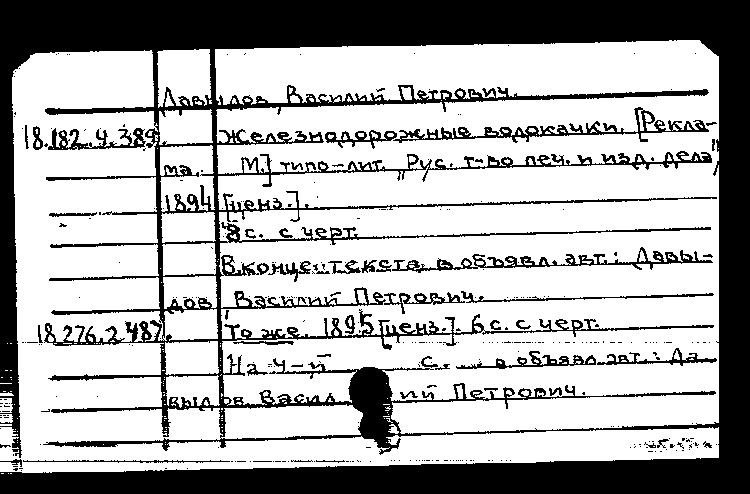 Давыдов, Василий Петрович.
18.182.4.389. Железнодорожные водокачки. [Рекла-
ма. М.] типо-лит. „Рус. т-во печ. и изд. дела",
1894 [ценз.].
8 с. с черт.
В конце текста в объявл. авт.: Давы-
дов, Василий Петрович.
18.276.2.487. То же. 1895 [ценз.]. 6 с. с черт.
На 4-й с. в объявл. авт.: Да
выдов Василий Петрович.